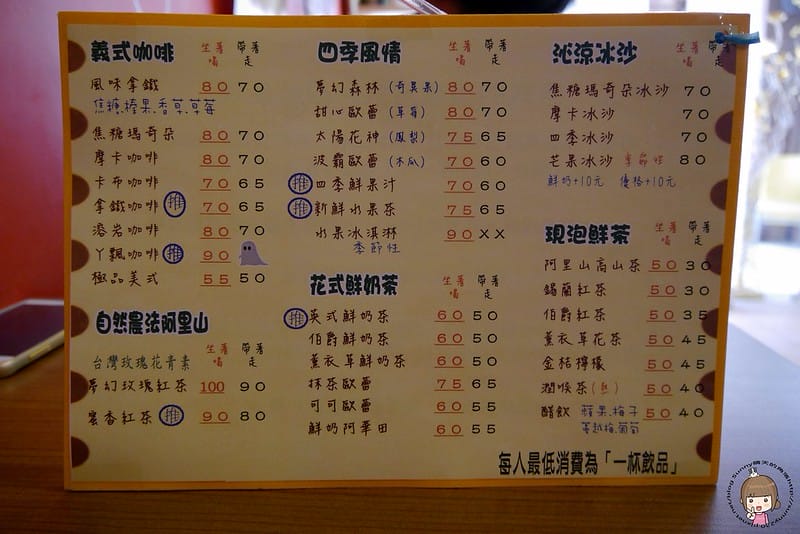 義式咖啡 坐著喝 帶著走
風味拿鐵 80 70
焦糖.榛果.香草.草莓
焦糖瑪奇朵 80 70
摩卡咖啡 80 70
卡布咖啡 70 65
拿鐵咖啡 推 70 65
溶岩咖啡 80 70
丫飄咖啡 推 90
極品美式 55 50
自然農法阿里山 坐著喝 帶著走
台灣玫瑰花青素
夢幻玫瑰紅茶 100 90
蜜香紅茶 推 90 80
四季風情 坐著喝 帶著走
夢幻森林(奇異果) 80 70
甜心歐蕾(草莓) 80 70
太陽花神(鳳梨) 75 65
波霸歐蕾(木瓜) 70 60
推 四季鮮果汁 70 60
推 新鮮水果茶 75 65
水果冰淇淋 90 XX
季節性
花式鮮奶茶 坐著喝 帶著走
推 英式鮮奶茶 60 50
伯爵鮮奶茶 60 50
薰衣草鮮奶茶 60 50
抹茶歐蕾 75 65
可可歐蕾 60 55
鮮奶阿華田 60 55
沁涼冰沙 坐著喝 帶著走
焦糖瑪奇朵冰沙 70
摩卡冰沙 70
四季冰沙 70
芒果冰沙 季節性 80
鮮奶+10元 優格+10元
現泡鮮茶 坐著喝 帶著走
阿里山高山茶 50 30
錫蘭紅茶 50 30
伯爵紅茶 50 35
薰衣草花茶 50 45
金桔檸檬 50 45
潤喉茶(熱) 50 40
醋飲 蘋果.梅子 50 40
蔓越梅.葡萄
每人最低消費為「一杯飲品」